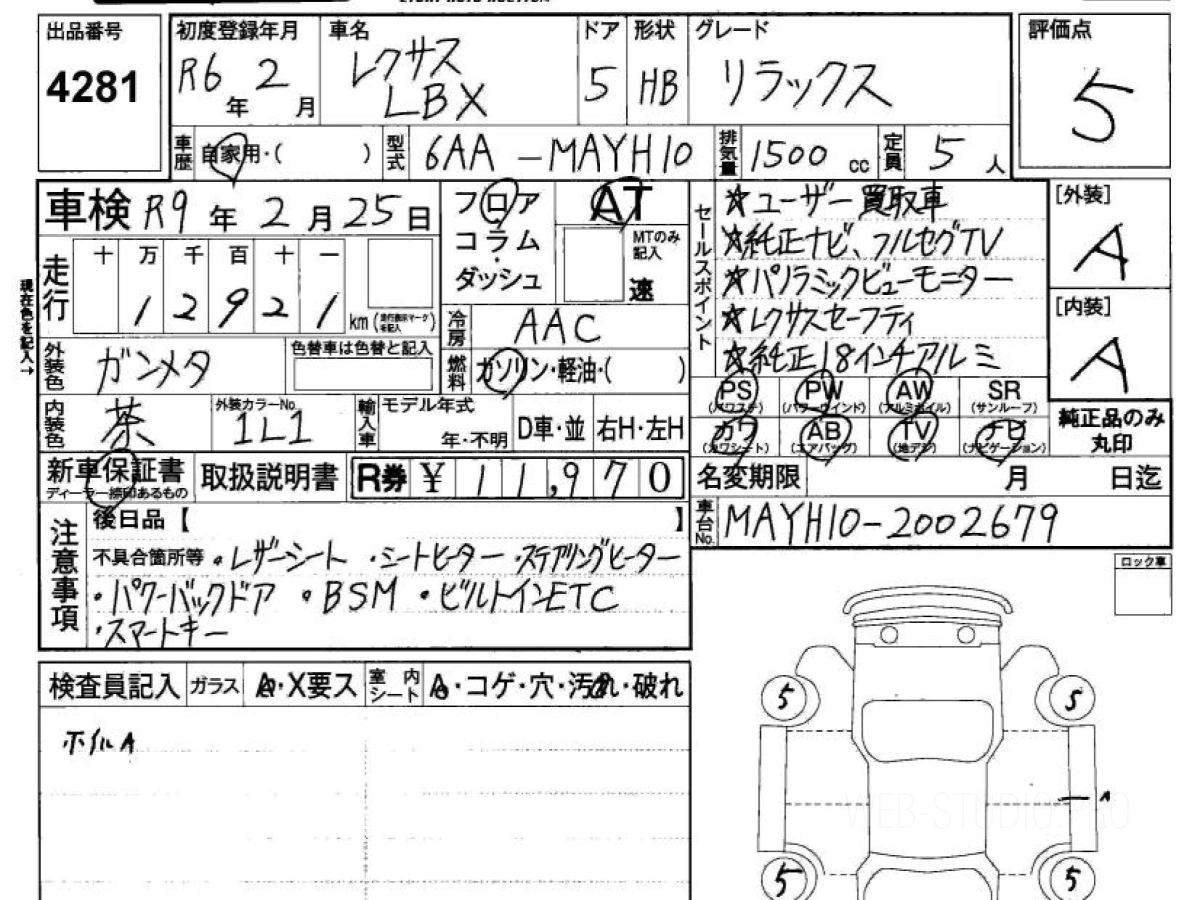 出品番号
4281
初度登録年月
R6年 2月
車名
レクサス
LBX
ドア
5
形状
HB
グレード
リラックス
評価点
5
車歴
自家用・( )
型式
6AA-MAYH10
排気量
1500 cc
定員
5人
車検 R9年 2月25日
フロア
コラム
・
ダッシュ
AT
MTのみ
記入
速
セールスポイント
☆ユーザー買取車
☆純正ナビ、フルセグTV
☆パノラミックビューモニター
☆レクサスセーフティ
☆純正18インチアルミ
[外装]
A
[内装]
A
現在色を記入→
走行
十 万 千 百 十 一
1 2 9 2 1
km(走行表示マークを記入)
冷房
AAC
外装色
ガンメタ
色替車は色替と記入
燃料
ガソリン・軽油・( )
PS
(パワステ)
PW
(パワーウインド)
AW
(アルミホイル)
SR
(サンルーフ)
カワ
(カワシート)
AB
(エアバッグ)
TV
(地デジ)
ナビ
(ナビゲーション)
純正品のみ
丸印
内装色
茶
外装カラーNo.
1L1
輸入車
モデル年式
年・不明
D車・並
右H・左H
新車保証書
ディーラー捺印あるもの
取扱説明書
R券 ¥ 11,970
名変期限 月 日迄
車台No.
MAYH10-2002679
注意事項
後日品【 】
不具合箇所等 ・レザーシート ・シートヒーター ・ステアリングヒーター
・パワーバックドア ・BSM ・ビルトインETC
・スマートキー
ロック車
検査員記入
ガラス
A・X要ス
室内シート
A・コゲ・穴・汚れ・破れ
ホイルA
5
5
A
5
5
WEB-STUDIO.PRO